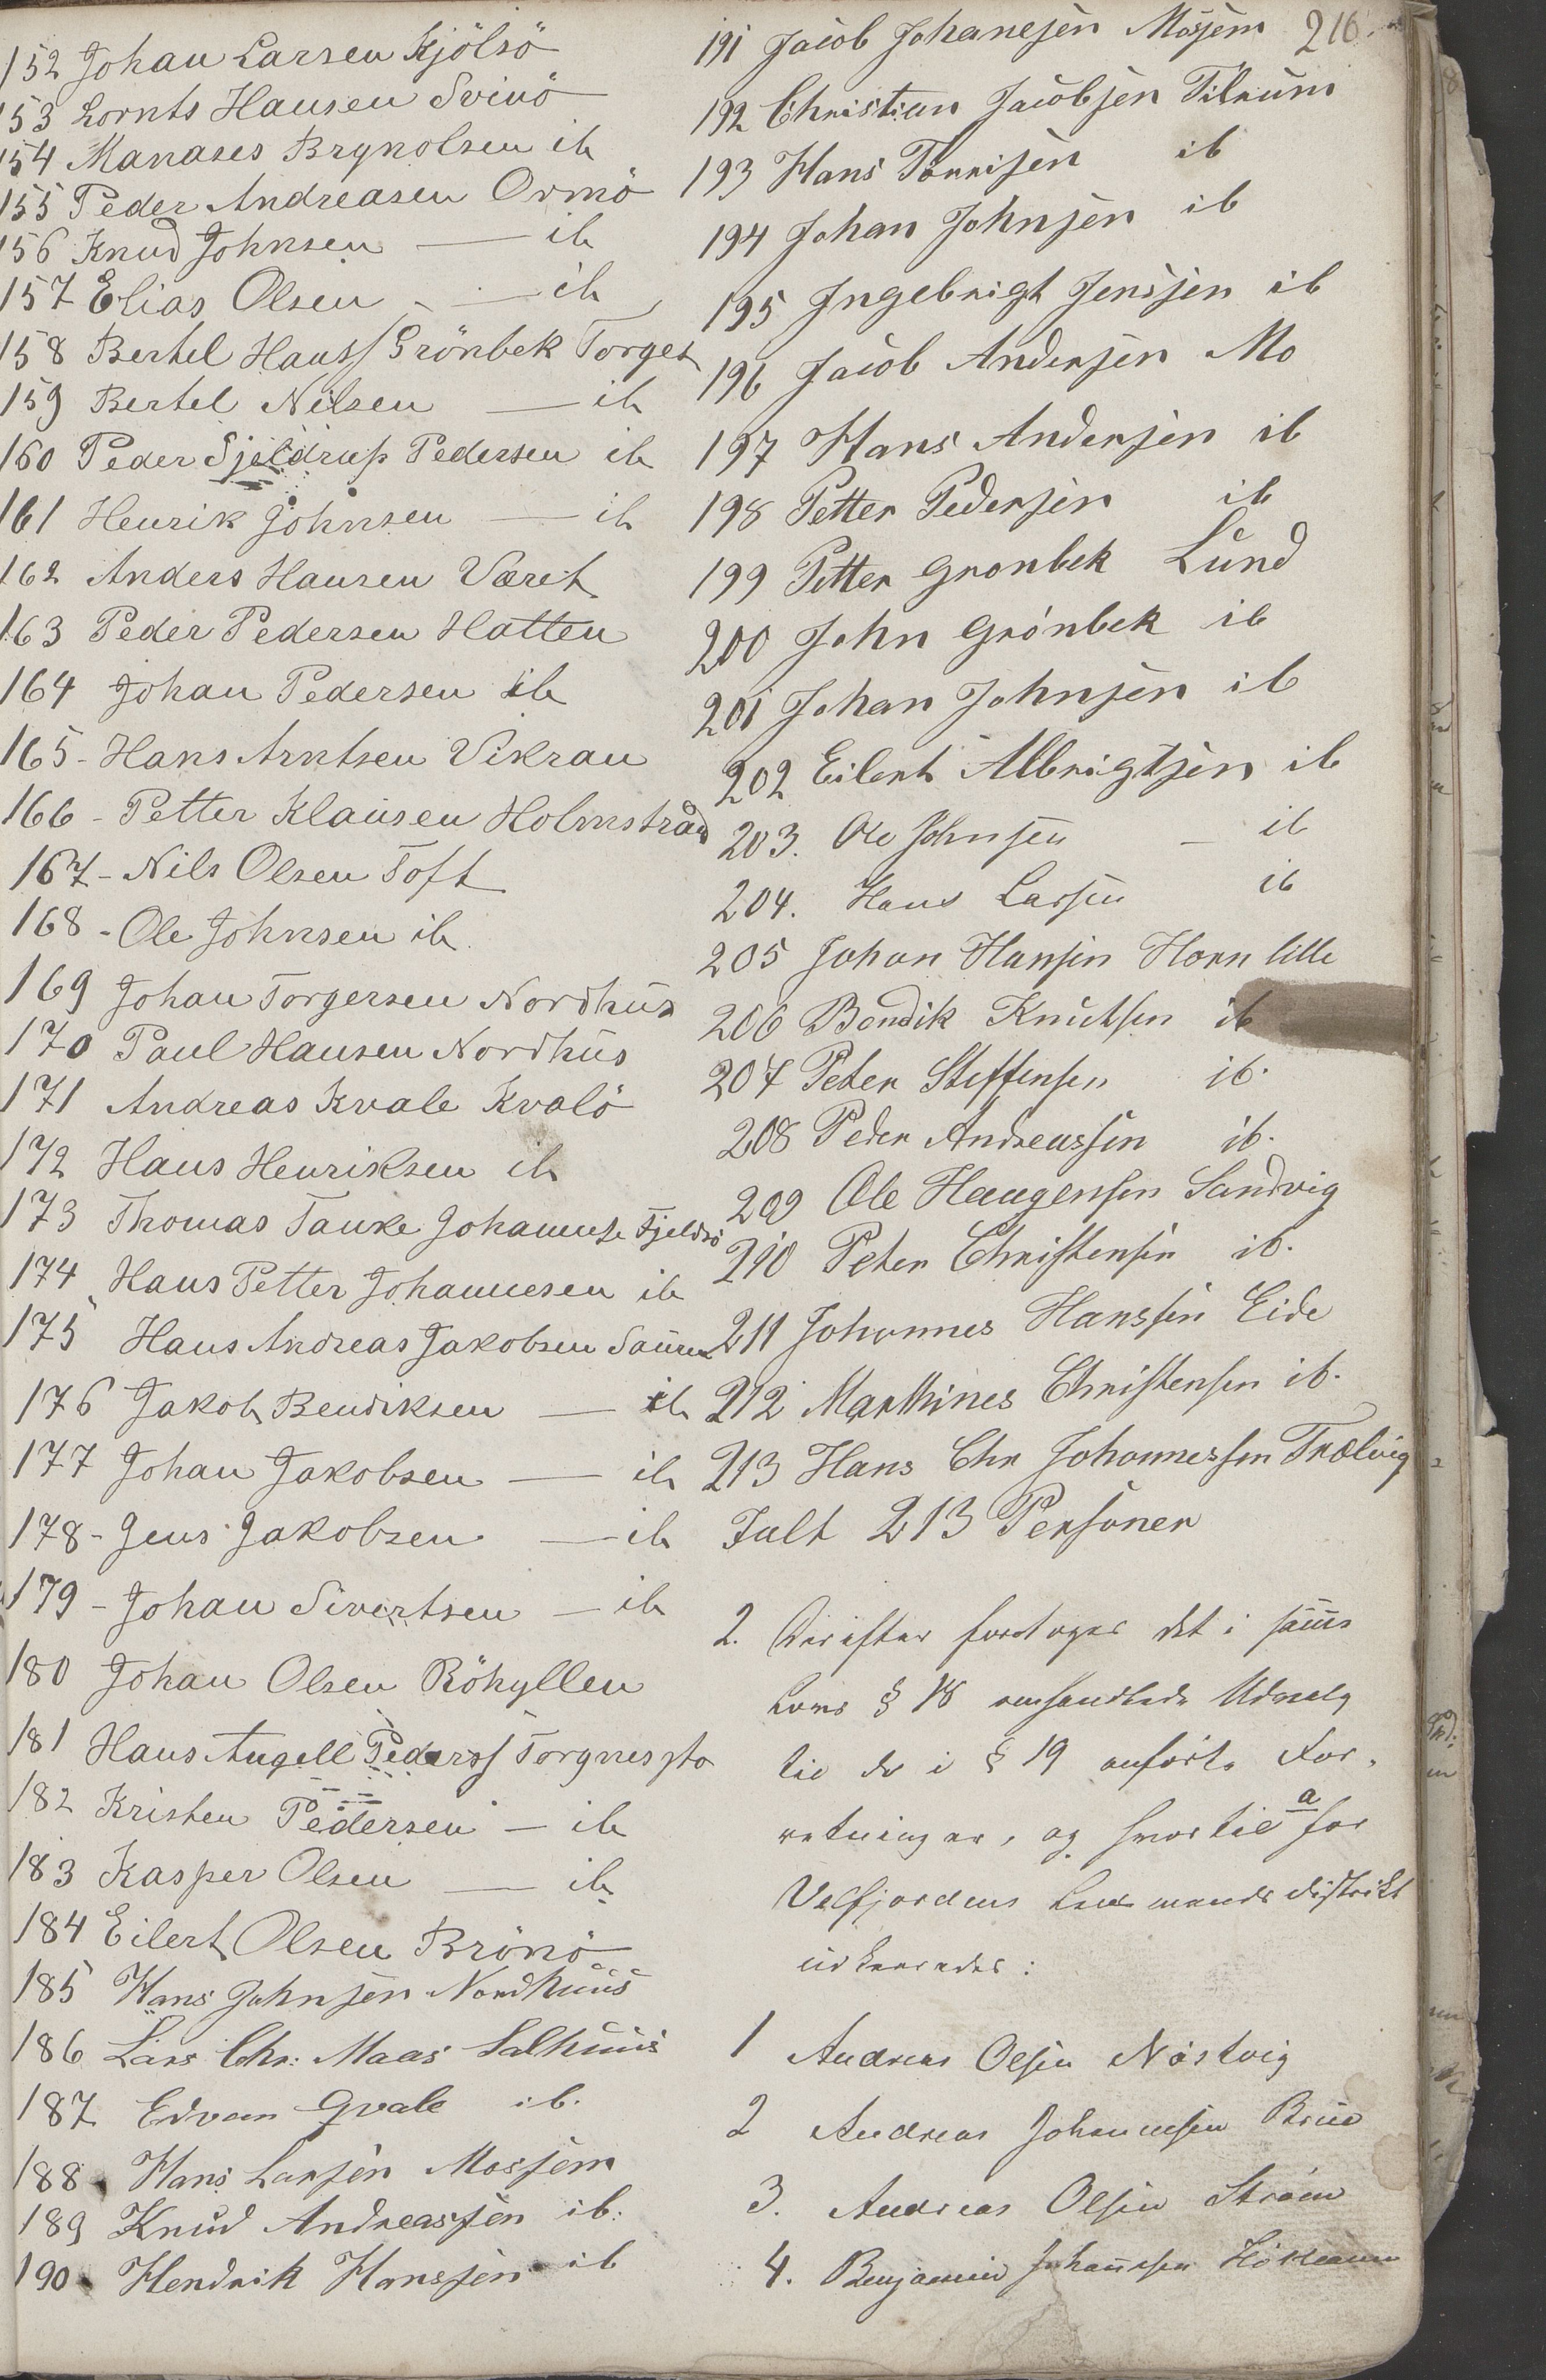 216.
152 Johan Larsen Kjölsö
153 Lornts Hansen Svinö
154 Manases Brynolsen ib
155 Peder Andreasen Ormö
156 Knud Johnsen — ib
157 Elias Olsen — ib
158 Bertel Hanss Grönbek Torget
159 Bertel Nilsen — ib
160 Peder Sjeldrup Pedersen ib
161 Henrik Johnsen — ib
162 Anders Hansen Været
163 Peder Pedersen Hatten
164 Johan Pedersen ib
165 - Hans Arntsen Vikran
166 - Petter Klausen Holmstrand
167 - Nils Olsen Toft
168 - Ole Johnsen ib
169 Johan Torgersen Nordhus
170 Paul Hansen Nordhus
171 Andreas Kvale Kvalö
172 Hans Henriksen ib
173 Thomas Tanke Johannes Fjeldsö
174 Hans Petter Johannesen ib
175 Hans Andreas Jakobsen Sauren
176 Jakob Bendiksen — ib
177 Johan Jakobsen — ib
178 - Jens Jakobsen — ib
179 - Johan Sivertsen — ib
180 Johan Olsen Röhyllen
181 Hans Angell Peders Torgnes
182 Kristen Pedersen — ib
183 Kasper Olsen — ib
184 Eilert Olsen Brönö
185 Hans Johnsen Nordhuus
186 Lars Chr: Maas Salhuus
187 Edvan Qvale ib.
188 Hans Larsen Mosjem
189 Knud Andreassen ib:
190 Hendrik Hanssen ib
191 Jacob Johanesen Mosjem
192 Christian Jacobsen Tilrum
193 Hans Tönnisen ib
194 Johan Johnsen ib
195 Ingebrigt Jenssen ib
196 Jacob Andersen Mo
197 Hans Andersen ib
198 Petter Pedersen ib
199 Petter Gronbek Lund
200 John Grönbek ib
201 Johan Johnsen ib
202 Eilert Albrigtsen ib
203. Ole Johnsen — ib
204. Hans Larsen ib
205 Johan Hansen Horn lille
206 Bendik Knutsen ib
207 Peter Steffensen ib.
208 Peder Andreassen ib.
209 Ole Haugensen Sandvig
210 Peter Christensen ib.
211 Johannes Hanssen Eide
212 Marthines Christensen ib.
213 Hans Chr Johannessen Trælvig
Ialt 213 Personer
2. Derefter foretoges det i samme
Lovs § 18 omhandlede Udvalg
til de i § 19 anförte For-
retninger, og hvortil a for
Velfjordens Lensmands distrikt
udkaaredes:
1 Andreas Olsen Nöstvig
2 Andreas Johannesen Brud
3. Andreas Olsen Ström
4. Benjamin Johannesen